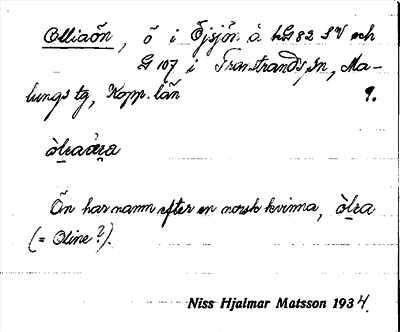 Olliaön, ö i Öjsjön å hG82 SV och
G 107 i Transtrands sn, Ma-
lungs tg, Kopp. län 9.
Ön har namn efter en norsk kvinna, òlea
(= Oline?).
Niss Hjalmar Matsson 1934.